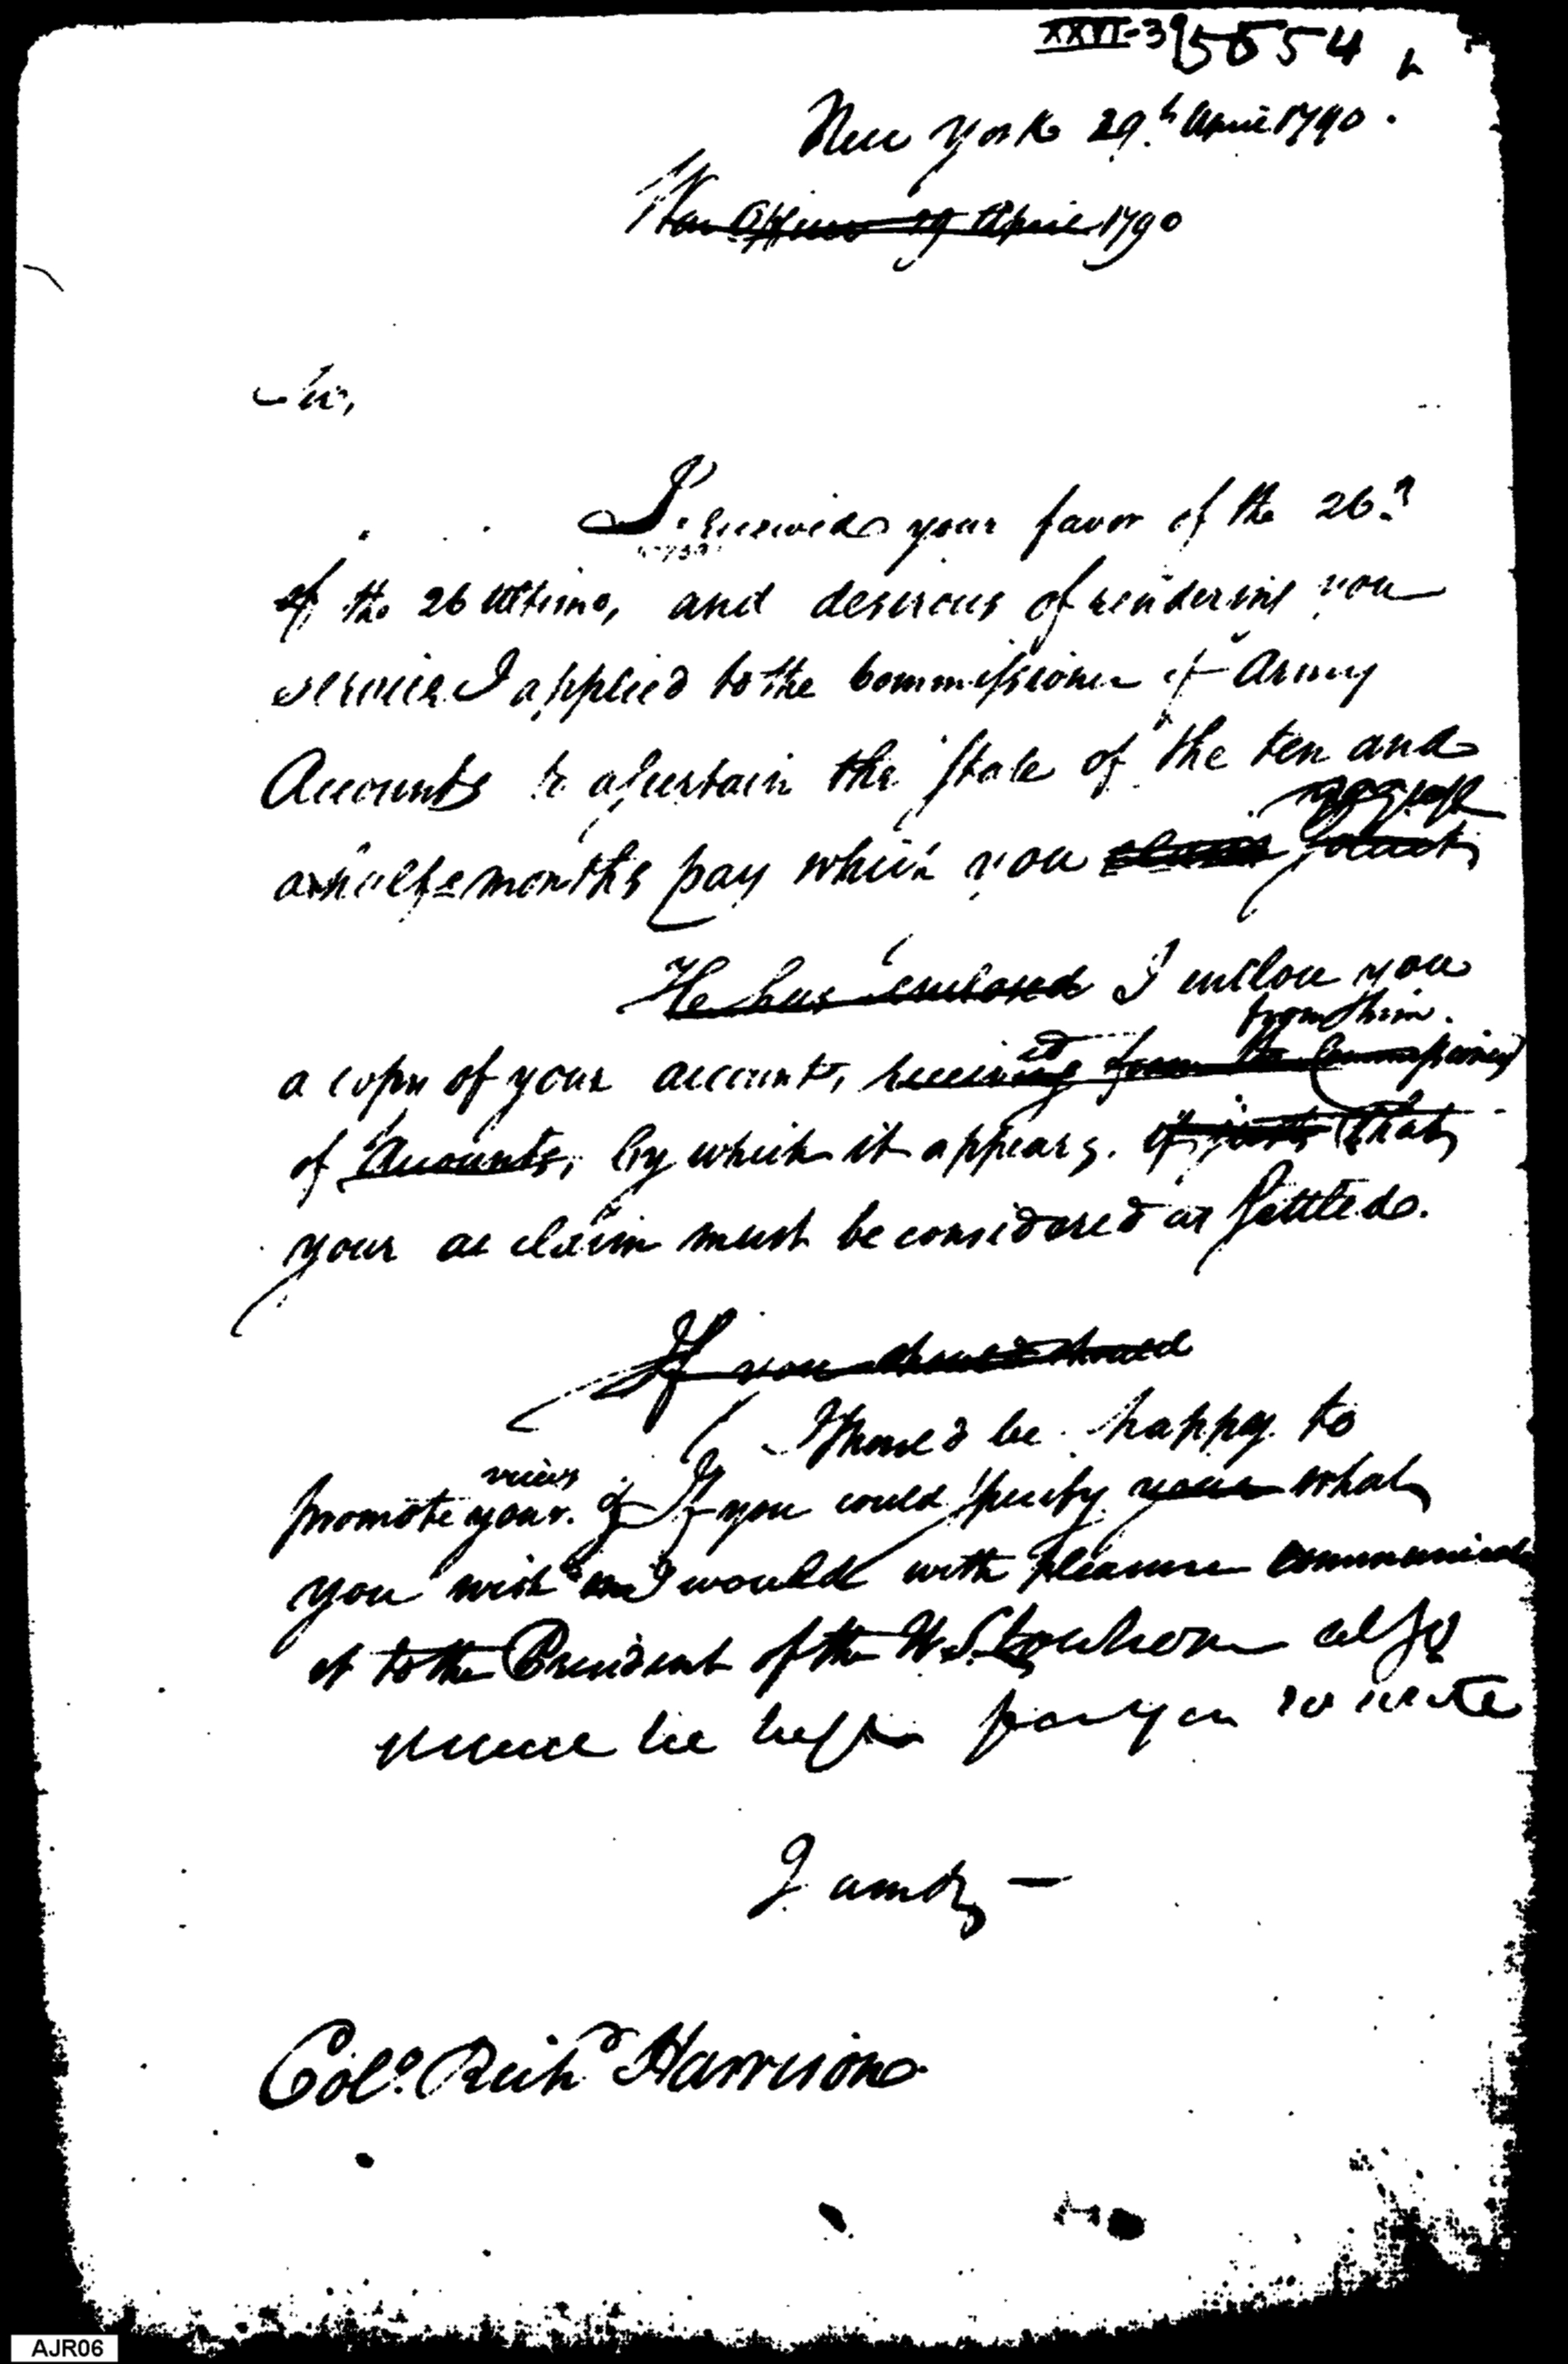 XXVI-395554
New York 29th April 1790.
War Office 29 April 1790
Sir,
I received your favor of the 26th
of the 26 Ultimo, and desirous of rendering you
service I applied to the Commissioner of Army
Accounts to ascertain the state of the ten and
a half months pay which you claim
He has enclosed I enclose you
from him.
a copy of your account, received from the Commissioner
of Accounts, by which it appears. that
your ac claim must be considered as settled.
If you should should
I should be happy to
views
promote your. If you could specify your what
you wish I would with pleasure communicate
it to the President of the U.S. to whom also
it be best for you to write
I am &
Colo. Richd Harrison
AJR06